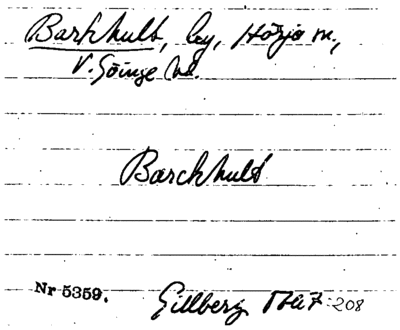 Barkhult, by, Hörja sn,
V. Göinge hd.
Barckhult
Nr 5359.
Gillberg 208